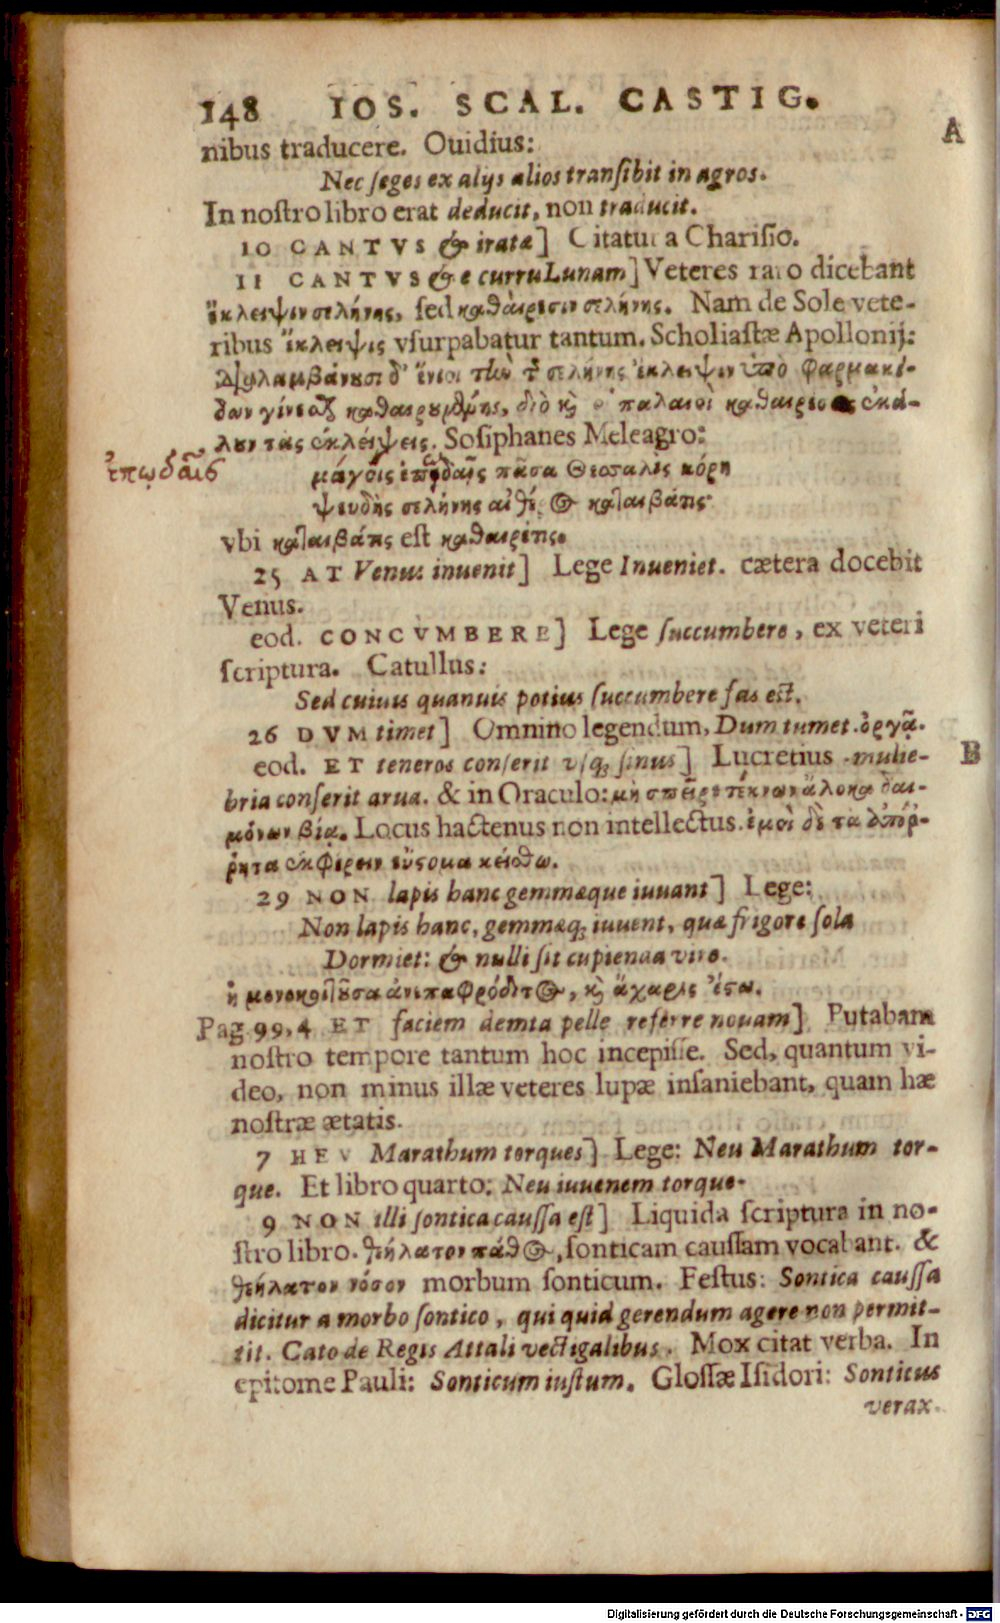 148 IOS. SCAL. CASTIG.
A
nibus traducere. Ouidius:
Nec ſeges ex alijs alios tranſibit in agros.
In noſtro libro erat deducit, non traducit.
10 CANTVS & iratæ] Citatur a Chariſio.
11 CANTVS & e curru Lunam] Veteres raro dicebant
ἔκλειψιν σελήνης, ſed καθαίρεσιν σελήνης. Nam de Sole vete-
ribus ἔκλειψις vſurpabatur tantum. Scholiaſtæ Apollonij:
δ' ἔνιοι τὴν τ͂ σελήνης ἔκλειψιν ὑπὸ φαρμακί-
δων γίνεσθαι διὸ κ̀ οἱ παλαιοὶ καθαιρέσεις ἐκά-
λουν τὰς ἐκλείψεις. Soſiphanes Meleagro:
ἐπῳδαῖς
μάγοις ἐπῳδαῖς πᾶσα Θεσσαλὶς κόρη
ψευδὴς σελήνης αἰθέρος καταιβάτις·
vbi καταιβάτις eſt καθαιρέτις.
25 AT Venus inuenit] Lege Inueniet. cætera docebit
Venus.
eod. CONCVMBERE] Lege ſuccumbere, ex veteri
ſcriptura. Catullus:
Sed cuiuis quanuis potius ſuccumbere fas eſt.
26 DVM timet] Omnino legendum, Dum tumet. ὀργᾷ.
B
eod. ET teneros conſerit vſq; ſinus] Lucretius -mulie-
bria conſerit arua. & in Oraculo: μὴ σπεῖρε τέκνων ἄλοκα δαι-
μόνων βίᾳ. Locus hactenus non intellectus. ἐμοὶ δὲ τὰ ἀπόρ-
ῥητα ἐκφέρειν εὔστομα κείσθω.
29 NON lapis hanc gemmæque iuuant] Lege:
Non lapis hanc, gemmæq; iuuent, quæ frigore ſola
Dormiet: & nulli ſit cupienda viro.
ἡ μονοκοιτοῦσα ἀνεπαφρόδιτος, κ̀ ἄχαρις ἔστω.
Pag 99,4 ET faciem demta pelle referre nouam] Putabam
noſtro tempore tantum hoc incepiſſe. Sed, quantum vi-
deo, non minus illæ veteres lupæ inſaniebant, quam hæ
noſtræ ætatis.
7 HEV Marathum torques] Lege: Neu Marathum tor-
que. Et libro quarto: Neu iuuenem torque.
9 NON illi ſontica cauſſa eſt] Liquida ſcriptura in no-
ſtro libro. θεήλατον πάθος, ſonticam cauſſam vocabant. &
θεήλατον νόσον morbum ſonticum. Feſtus: Sontica cauſſa
dicitur a morbo ſontico, qui quid gerendum agere non permit-
tit. Cato de Regis Attali vectigalibus. Mox citat verba. In
epitome Pauli: Sonticum iuſtum. Gloſſæ Iſidori: Sonticus
verax.
Digitalisierung gefördert durch die Deutsche Forschungsgemeinschaft - DFG